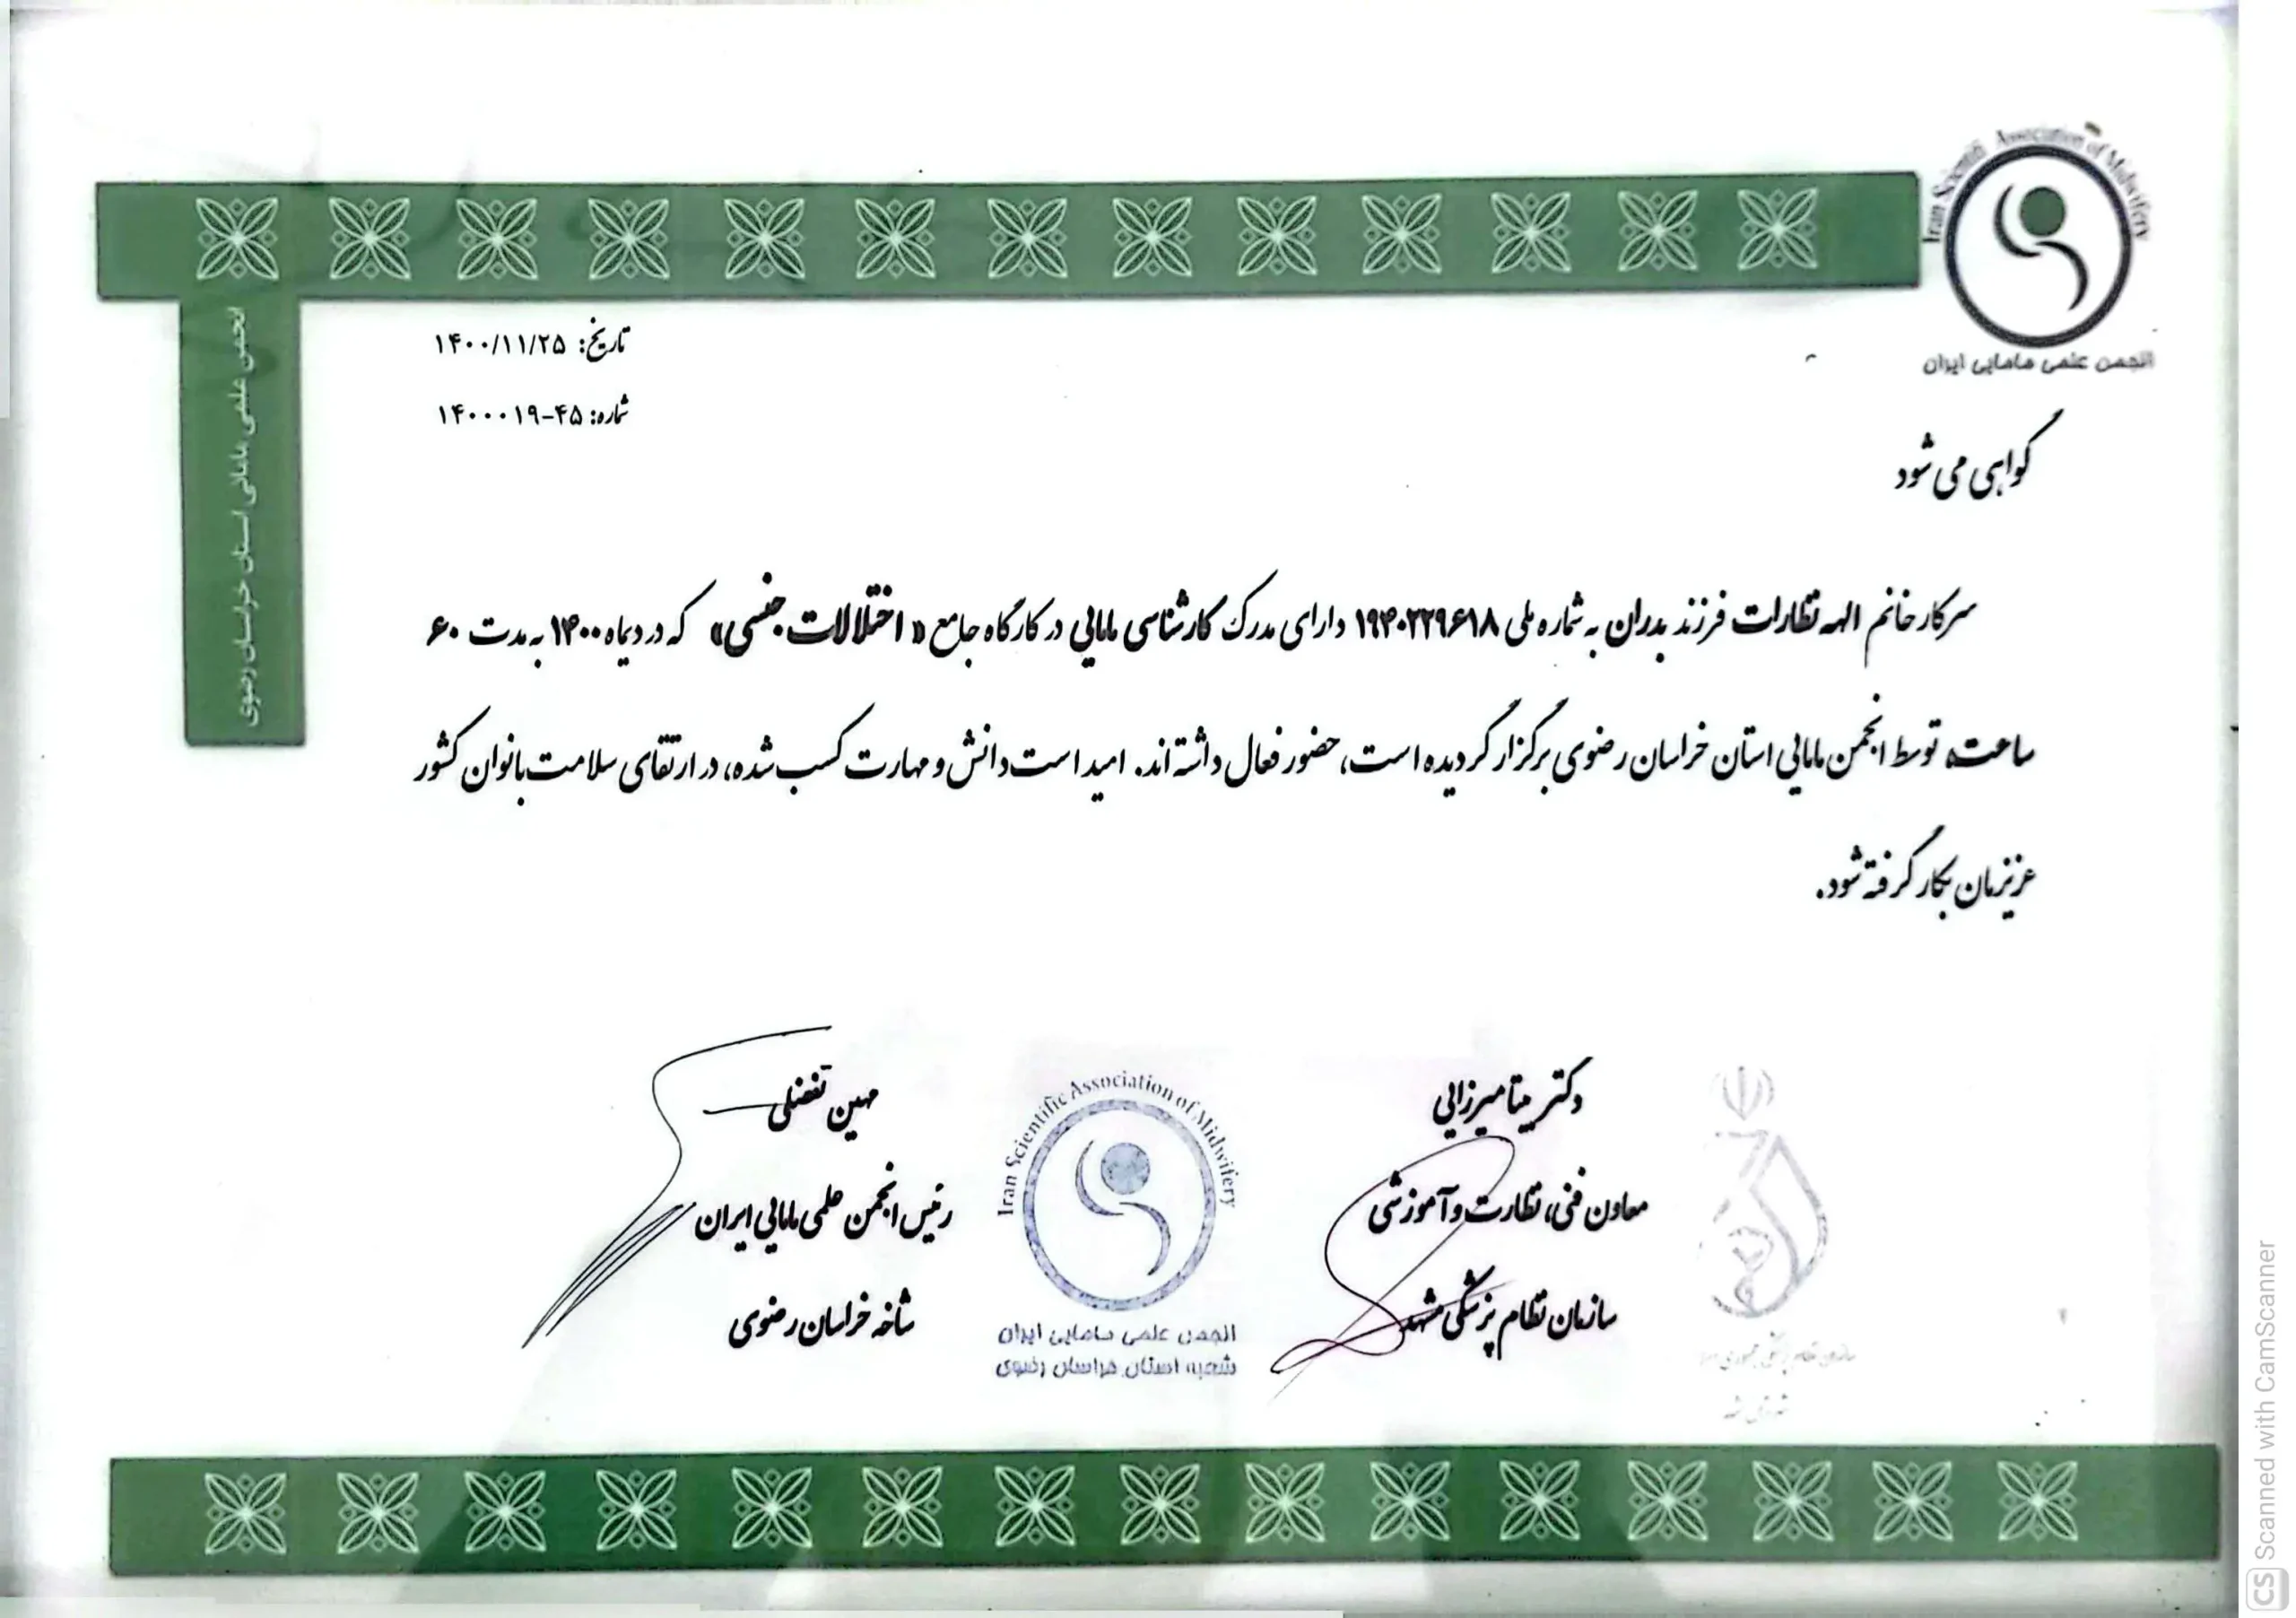 Iran Scientifi Association of Midwifery
انجمن علمی مامایی ایران
انجمن علمی مامائی استان خراسان رضوی
تاریخ: ۱۴۰۰/۱۱/۲۵
شماره: ۴۵-۱۴۰۰۰۱۹
گواهی می شود
سرکار خانم الهه نظارات فرزند بدران به شماره ملی ۱۹۴۰۲۲۹۶۱۸ دارای مدرک کارشناسی مامایی در کارگاه جامع « اختلالات جنسی» که در دیماه ۱۴۰۰ به مدت ۶۰
ساعت، توسط انجمن مامایی استان خراسان رضوی برگزار گردیده است، حضور فعال داشته اند. امید است دانش و مهارت کسب شده، در ارتقای سلامت بانوان کشور
عزیزمان بکار گرفته شود.
دکتر بیتا میرزایی
معاون فنی، نظارت و آموزشی
سازمان نظام پزشکی مشهد
Iran Scientific Association of Midwifery
انجمن علمی مامایی ایران
شعبه استان خراسان رضوی
مهین تفضلی
رئیس انجمن علمی مامایی ایران
شاخه خراسان رضوی
CS Scanned with CamScanner